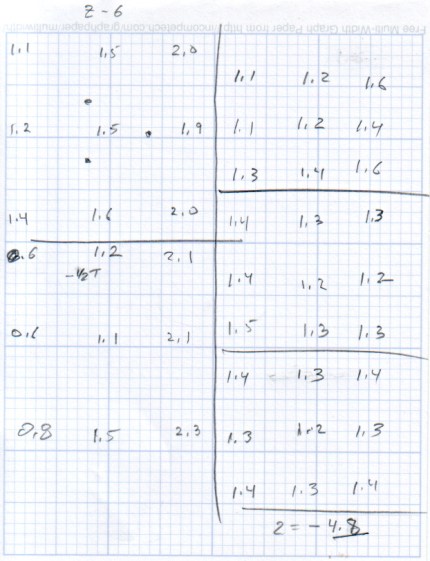 Z - 6
Free Multi-Width Graph Paper from http://incompetech.com/graphpaper/multiwidth/
1.1 1.5 2.0
1.2 1.5 1.9
1.4 1.6 2.0
0.6 1.2 2.1
-½T
0.6 1.1 2.1
0.8 1.5 2.3
1.1 1.2 1.6
1.1 1.2 1.4
1.3 1.4 1.6
1.4 1.3 1.3
1.4 1.2 1.2
1.5 1.3 1.3
1.4 1.3 1.4
1.3 1.2 1.3
1.4 1.3 1.4
Z = -4.8